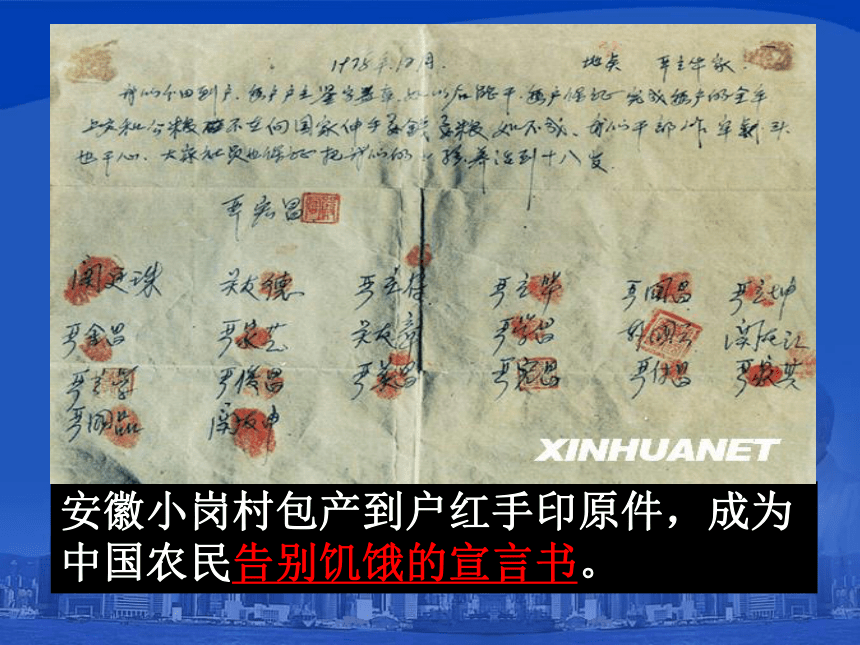 1978年12月. 地点 严立华家.
我们分田到户.每户户主签字盖章.如以后能干.每户保证完成每户的全年
上交和公粮 不在向国家伸手要钱要粮.如不成.我们干部作牢刹头
也干心.大家社员也保证把我们的小孩养活到十八岁.
严宏昌
关廷珠 关友德 严立符 严立华 严国昌 严立坤
严金昌 严家芝 关友章 严学昌 韩国云 关友江
严立学 严俊昌 严美昌 严宏昌 严付昌 严家其
严国品 关友申
XINHUANET
安徽小岗村包产到户红手印原件，成为
中国农民告别饥饿的宣言书。